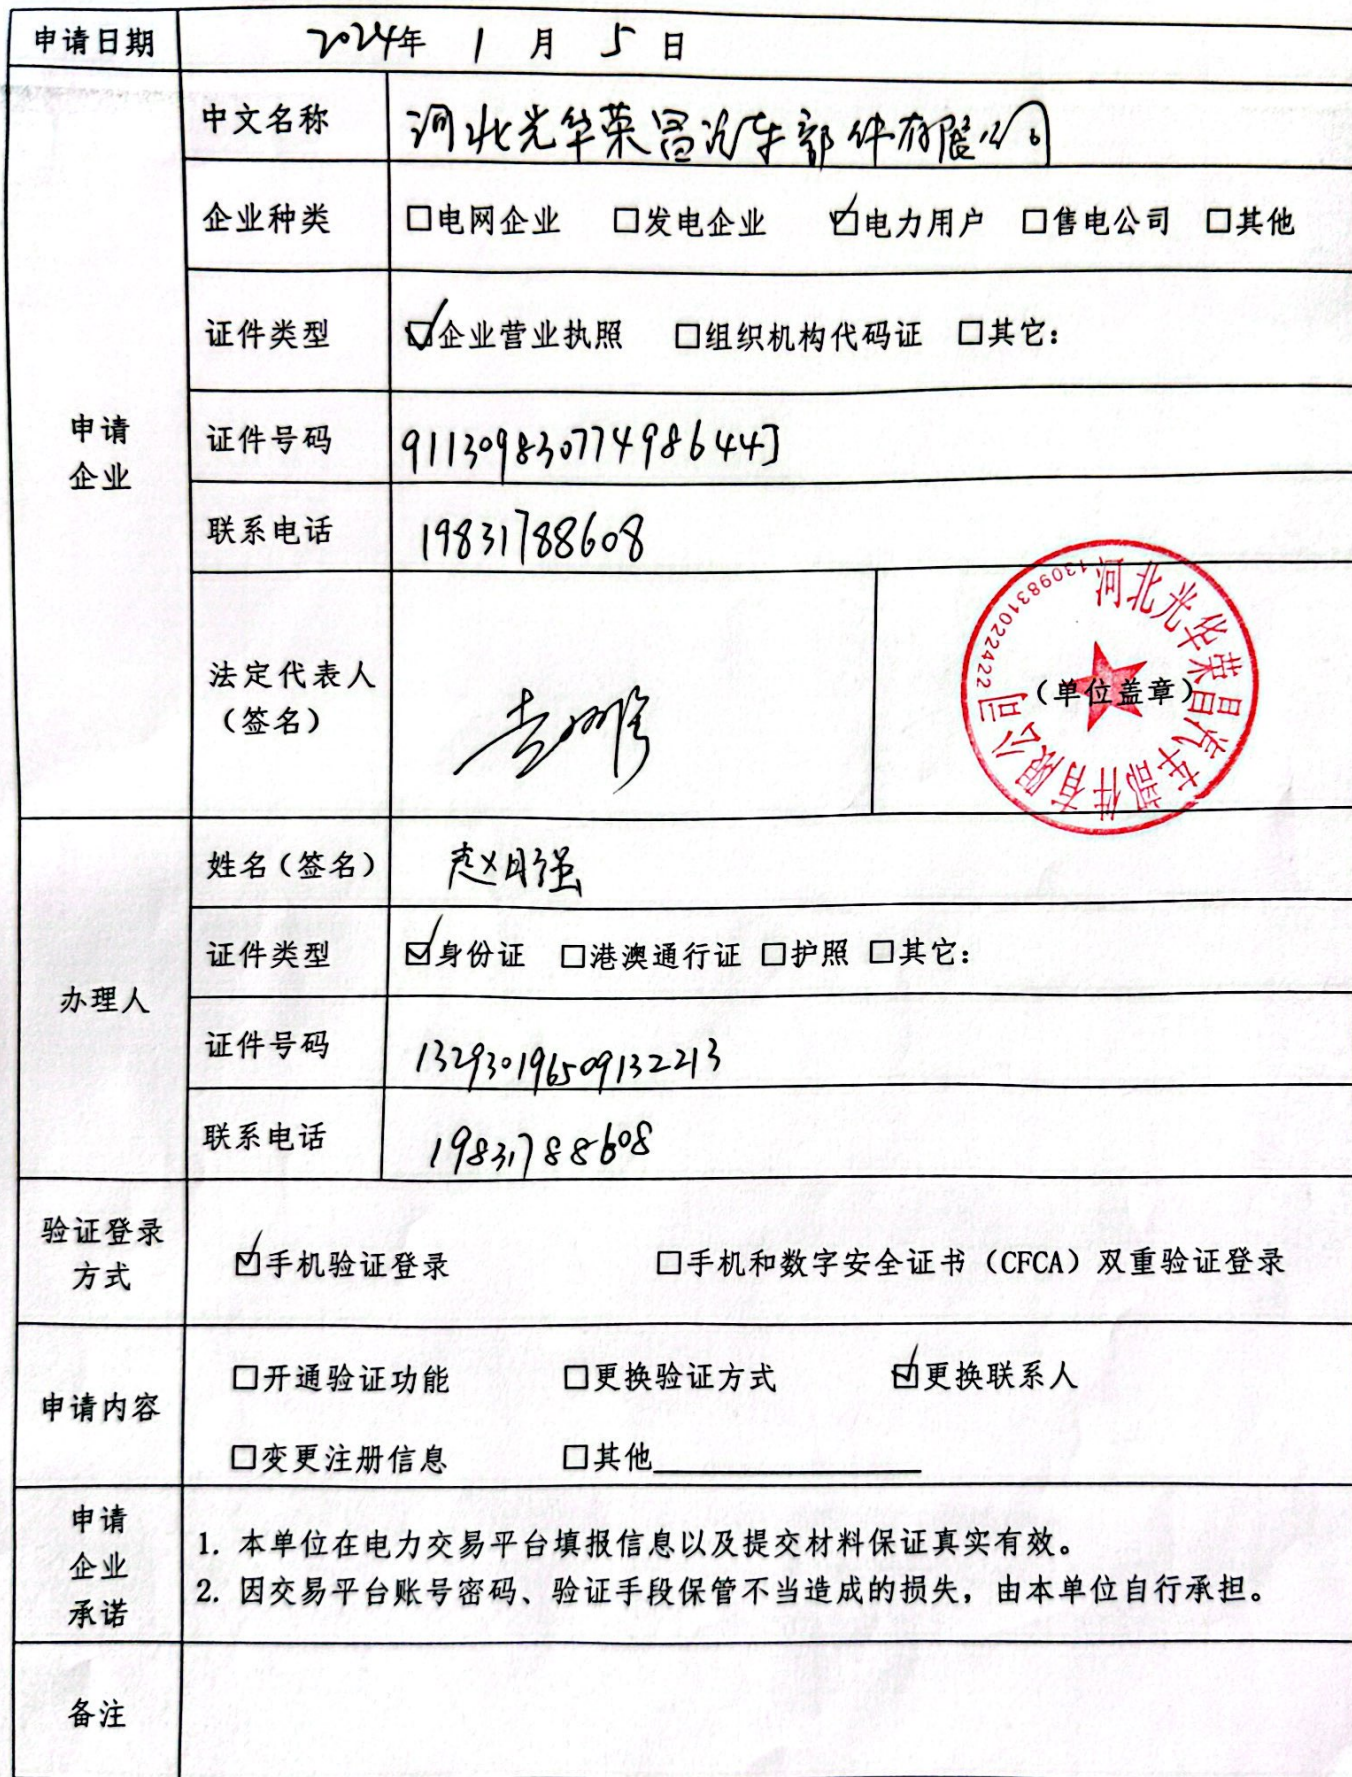 申请日期 2024年 1 月 5 日
申请企业
中文名称 河北光华荣昌汽车部件有限公司
企业种类 □电网企业 □发电企业 ☑电力用户 □售电公司 □其他
证件类型 ☑企业营业执照 □组织机构代码证 □其它：
证件号码 91130983077498644J
联系电话 19831788608
法定代表人
（签名）
（单位盖章）
河北光华荣昌汽车部件有限公司
1309831022422
办理人
姓名（签名） 赵月强
证件类型 ☑身份证 □港澳通行证 □护照 □其它：
证件号码 132930196509132213
联系电话 19831788608
验证登录
方式
☑手机验证登录 □手机和数字安全证书（CFCA）双重验证登录
申请内容
□开通验证功能 □更换验证方式 ☑更换联系人
□变更注册信息 □其他
申请
企业
承诺
1. 本单位在电力交易平台填报信息以及提交材料保证真实有效。
2. 因交易平台账号密码、验证手段保管不当造成的损失，由本单位自行承担。
备注